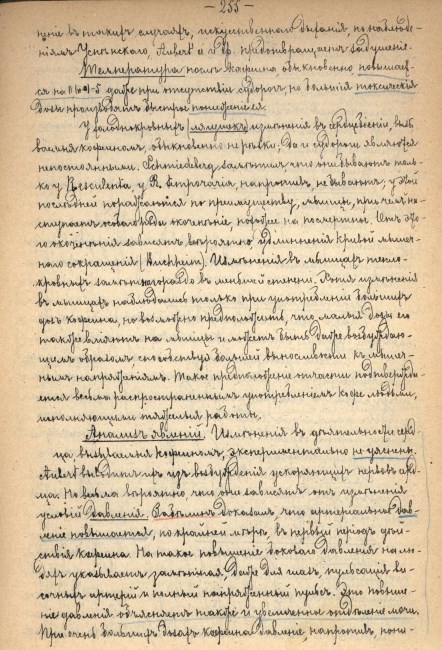 - 255 -
ченiе въ такихъ случаяхъ, искусственнаго дыханiя, по наблюде-
нiямъ Успенскаго, Aubert'а и др. предотвращаетъ задушенiе.
Температура послѣ кофеина обыкновенно повышает-
ся на при отсутствiи судорогъ, но большiя токсическiя
дозы производятъ быстрое пониженiе ея.
У холоднокровныхъ (лягушекъ) измѣненiя въ сердцебiенiи, выз-
ванныя кофеиномъ, обыкновенно не рѣзки; да и судороги являются
непостоянными. Schmiedeberg замѣтилъ что они бываютъ толь-
ко у R. esculenta, у R. temporaria, напротивъ, не бываютъ; у этой
послѣдней поражаются по преимуществу, мышцы, при чемъ на-
ступаетъ особаго рода окоченѣнiе, подобное на посмертное. Отъ это-
го окоченѣнiя зависятъ, вѣроятно, удлиненiя кривой мышеч-
наго сокращенiя (Buchheim). Измѣненiя въ мышцахъ тепло-
кровныхъ замѣтны гораздо въ меньшей степени. Хотя измѣненiя
въ мышцахъ наблюдались только при употребленiи большихъ
дозъ кофеина, но возможно предположить, что малыя дозы его
также влiяютъ на мышцы и можетъ быть даже возбуждаю-
щимъ образомъ способствуя большей выносливости къ мышеч-
нымъ напряженiямъ. Такое предположенiе отчасти подтвержда-
ется весьма распространеннымъ употребленiемъ кофе людьми,
исполняющими тяжелыя работы.
Анализъ явленiй. Измѣненiя въ дѣятельности серд-
ца вызываемыя кофеиномъ, экспериментально не уяснены.
Aubert выводитъ ихъ изъ возбужденiя ускоряющихъ нервовъ серд-
ца. Но весьма вѣроятно что они зависятъ отъ измѣненiя
условiй давленiя. доказалъ что артерiальное дав-
ленiе повышается, по крайней мѣрѣ, въ первый перiодъ дѣй-
ствiя кофеина. На такое повышенiе боковаго давленiя на лю-
дяхъ указываетъ замѣтная, даже для глазъ, пульсацiя ви-
сочныхъ артерiй и полный напряженный пульсъ. Это повыше-
нiе давленiя объясняетъ также и увеличенное отдѣленiе мочи.
При очень большихъ дозахъ кофеина давленiе, напротивъ, пони-